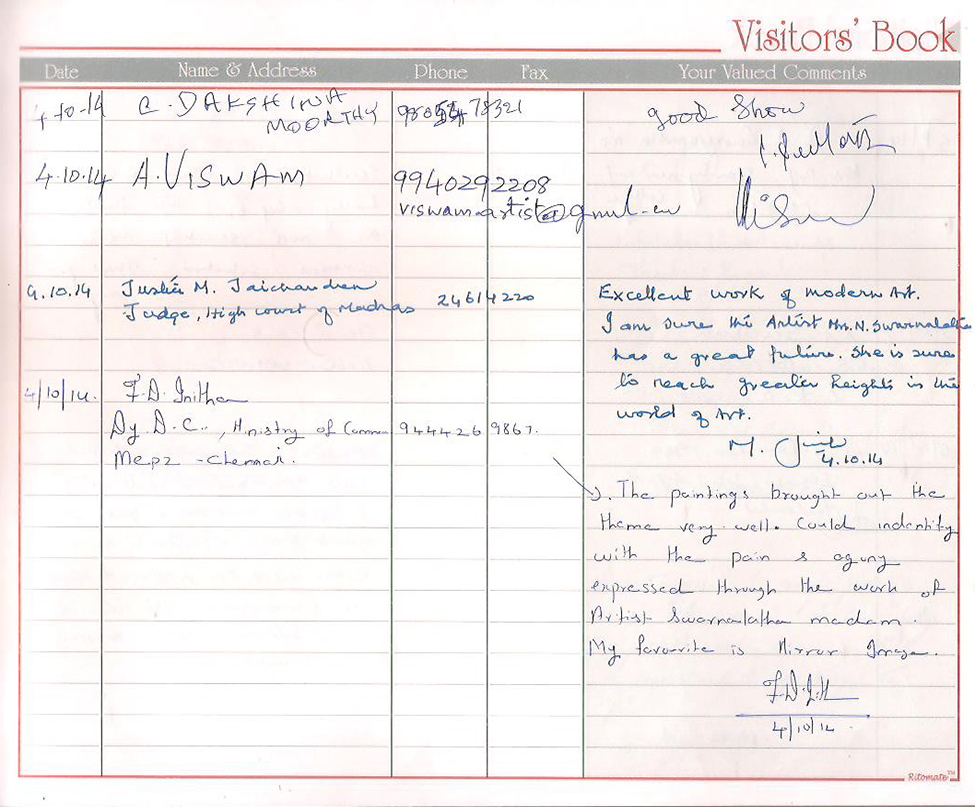 Visitors' Book
Date Name & Address Phone Fax Your Valued Comments
4-10-14 C. DAKSHINA
MOORTHY 78321
good Show
4.10.14 A. VISWAM 9940292208
viswam.artist@
9.10.14 Justice M. Jaichandren
Judge, High court of Madras 24614220
Excellent work of modern Art.
I am sure the Artist Mrs. N. Swarnalatha
has a great future. She is sure
to reach greater heights in the
world of Art.
M.
4.10.14
4/10/14. F.D. Initha
Dy. D.C., Ministry of Comm 944426 9867.
Mepz - Chennai.
The paintings brought out the
theme very well. Could indentify
with the pain & agony
expressed through the work of
Artist Swarnalatha madam.
My favourite is Mirror Image.
4/10/14
Ritomate™